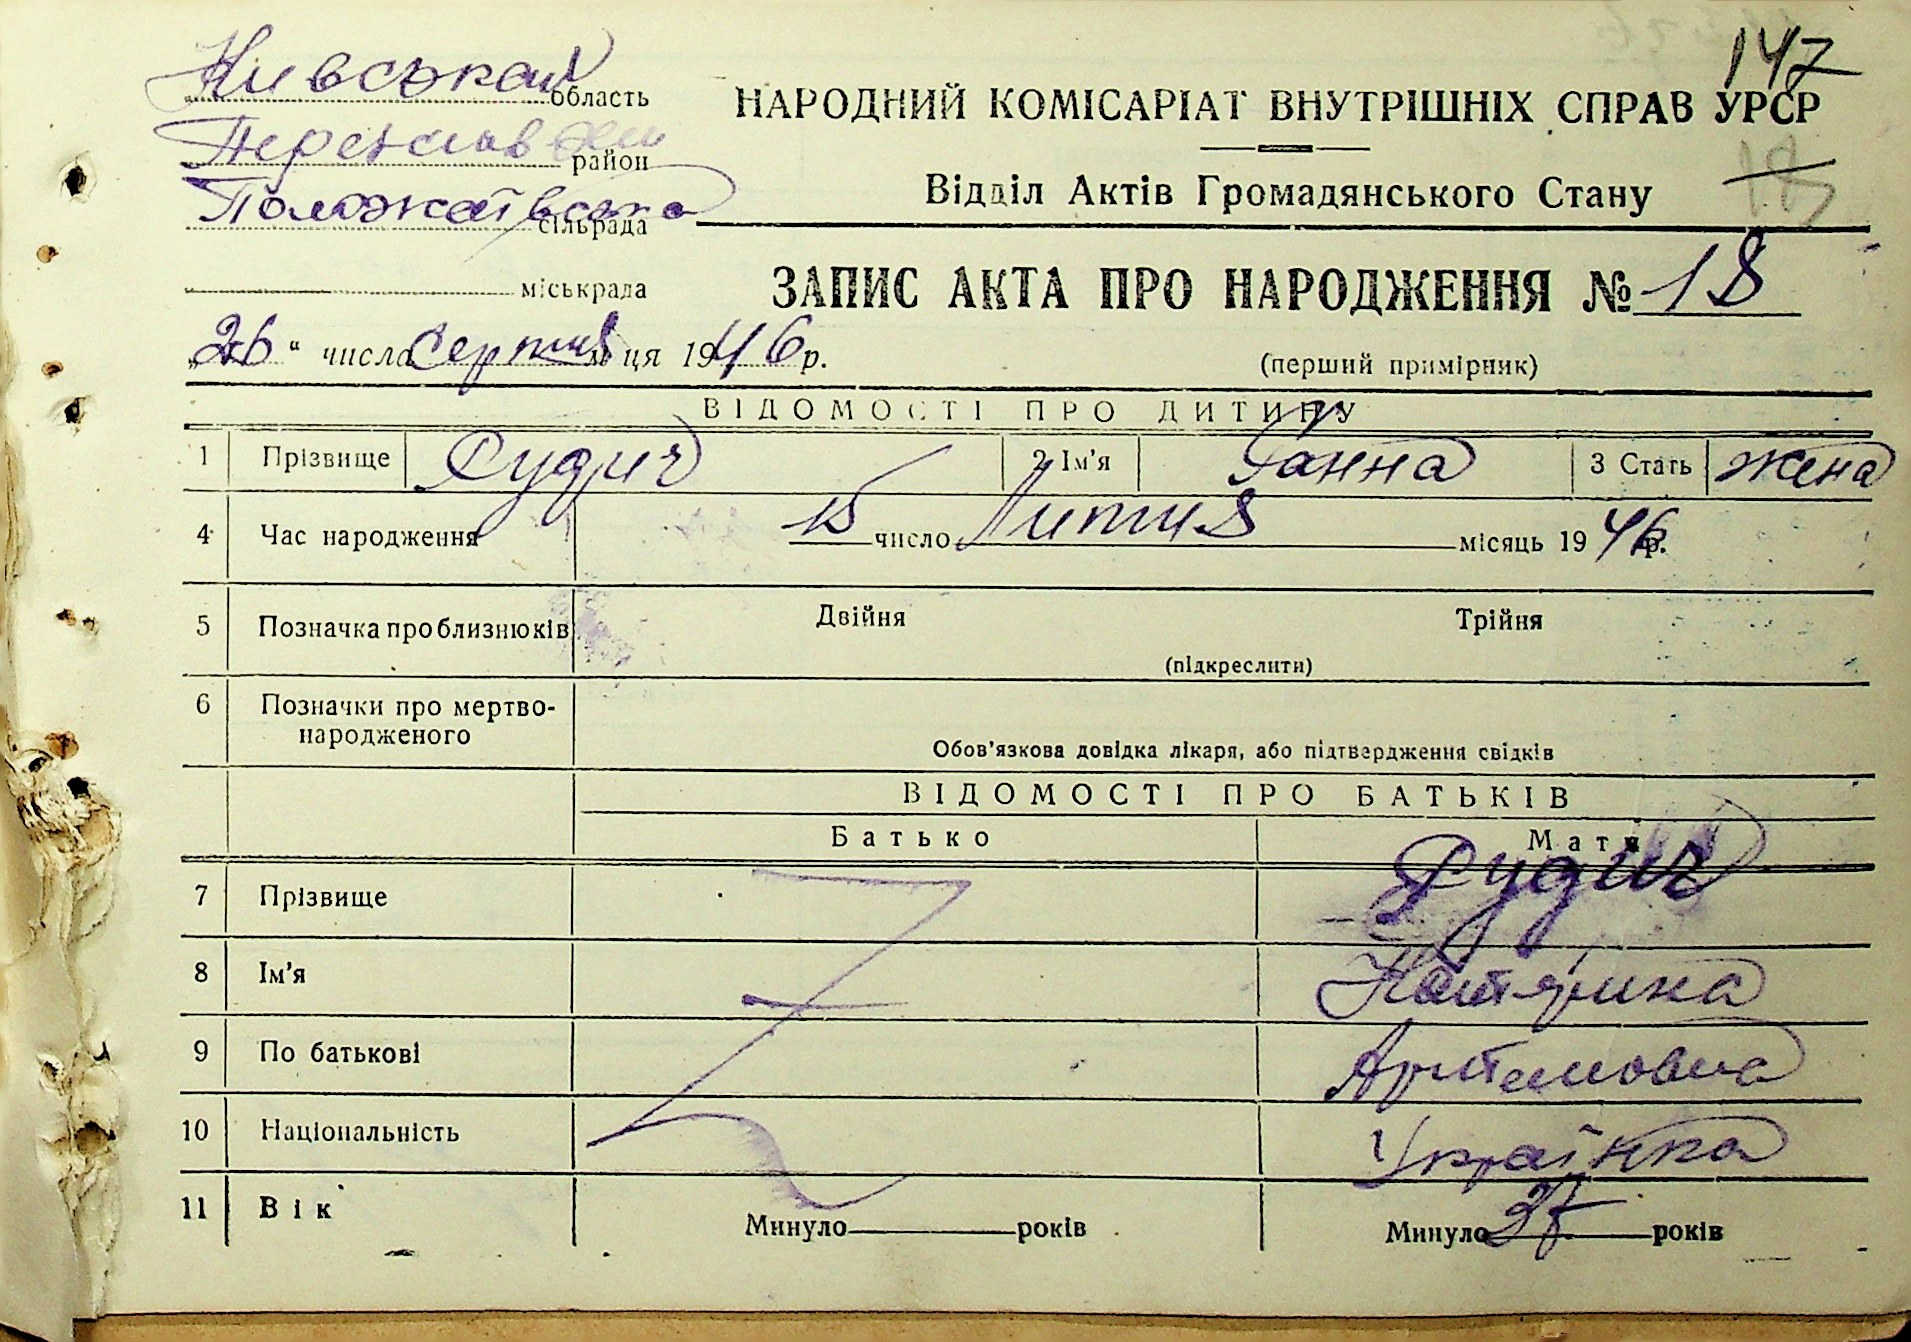 147
Київська область
НАРОДНИЙ КОМІСАРІАТ ВНУТРІШНІХ СПРАВ УРСР
Переяслав Хм район
Відділ Актів Громадянського Стану
сільрада
міськрада
ЗАПИС АКТА ПРО НАРОДЖЕННЯ № 18
„26“ числа Серпня м ця 1946 р.
(перший примірник)
ВІДОМОСТІ ПРО ДИТИНУ
1 Прізвище Рудич 2 Ім'я Ганна 3 Стать жена
4 Час народження 15 число Липня місяць 1946 р.
5 Позначка про близнюків Двійня Трійня
(підкреслити)
6 Позначки про мертво-
народженого
Обов'язкова довідка лікаря, або підтвердження свідків
ВІДОМОСТІ ПРО БАТЬКІВ
Батько Мати
7 Прізвище Рудич
8 Ім'я Катярина
9 По батькові Артемовна
10 Національність Українка
11 Вік Минуло років Минуло 37 років